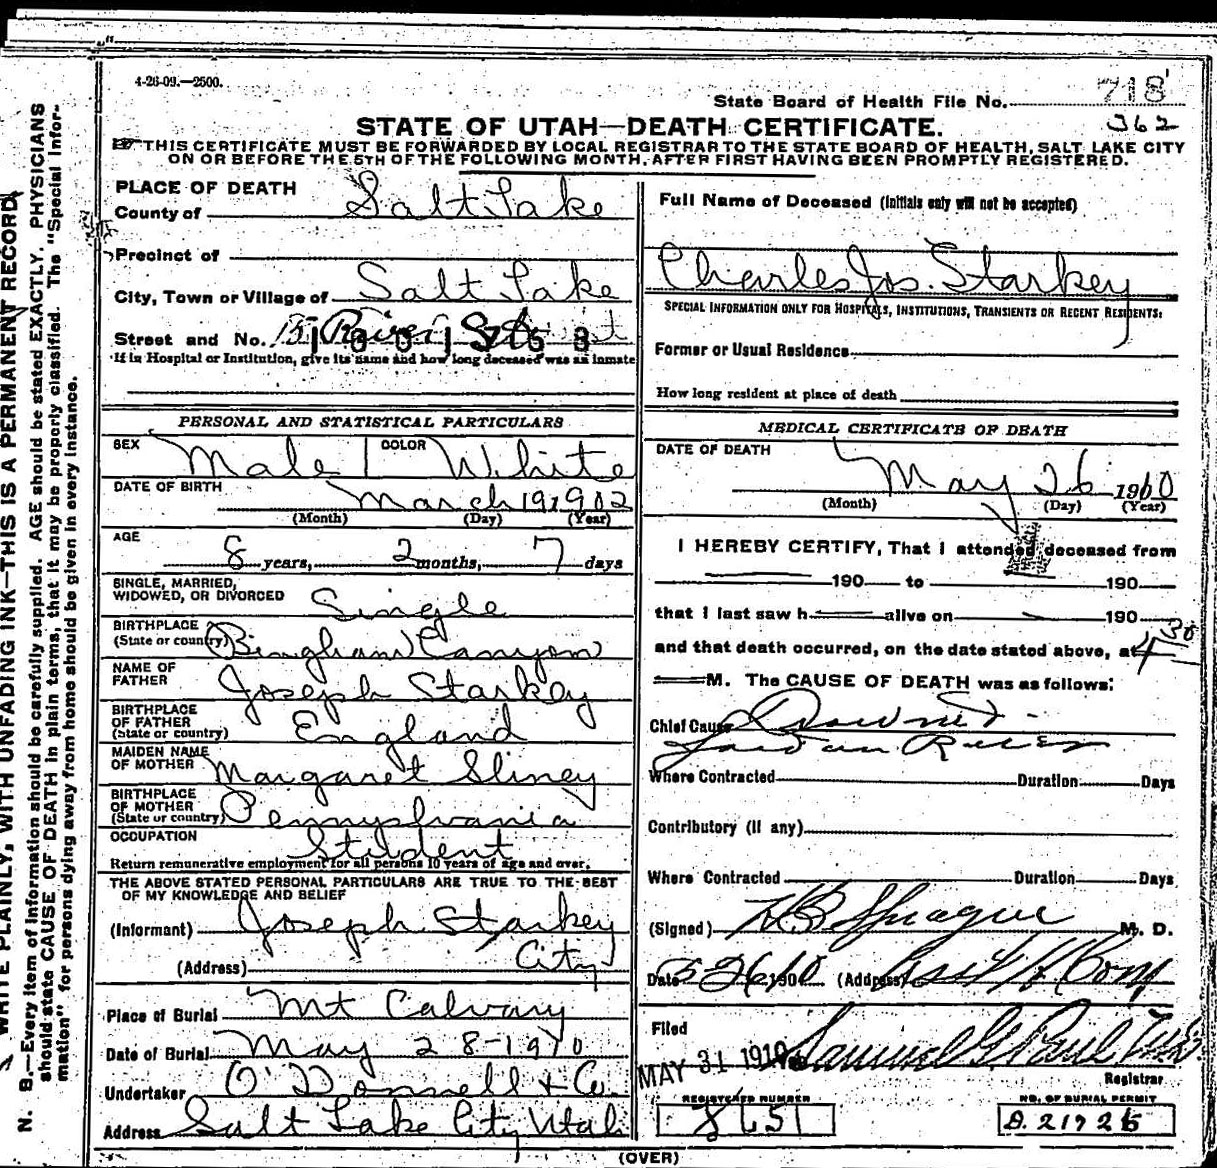 4-26-09.—2500.
State Board of Health File No. 718
362
STATE OF UTAH—DEATH CERTIFICATE.
THIS CERTIFICATE MUST BE FORWARDED BY LOCAL REGISTRAR TO THE STATE BOARD OF HEALTH, SALT LAKE CITY
ON OR BEFORE THE 5TH OF THE FOLLOWING MONTH, AFTER FIRST HAVING BEEN PROMPTLY REGISTERED.
PLACE OF DEATH
County of Salt Lake
Precinct of
City, Town or Village of Salt Lake
Street and No.
If in Hospital or Institution, give its name and how long deceased was an inmate
PERSONAL AND STATISTICAL PARTICULARS
SEX Male COLOR White
DATE OF BIRTH March 19 1902
(Month) (Day) (Year)
AGE
8 years, 2 months, 7 days
SINGLE, MARRIED,
WIDOWED, OR DIVORCED Single
BIRTHPLACE
(State or country) Bingham Canyon
NAME OF
FATHER Joseph Starkey
BIRTHPLACE
OF FATHER
(State or country) England
MAIDEN NAME
OF MOTHER Margaret Sliney
BIRTHPLACE
OF MOTHER
(State or country) Pennsylvania
OCCUPATION Student
Return remunerative employment for all persons 10 years of age and over.
THE ABOVE STATED PERSONAL PARTICULARS ARE TRUE TO THE BEST
OF MY KNOWLEDGE AND BELIEF
(Informant) Joseph Starkey
(Address) City
Place of Burial Mt Calvary
Date of Burial May 28-1910
Undertaker O'Donnell & Co.
Address Salt Lake City Utah
Full Name of Deceased (Initials only will not be accepted)
Charles Jos. Starkey
SPECIAL INFORMATION ONLY FOR HOSPITALS, INSTITUTIONS, TRANSIENTS OR RECENT RESIDENTS:
Former or Usual Residence
How long resident at place of death
MEDICAL CERTIFICATE OF DEATH
DATE OF DEATH
May 26 1910
(Month) (Day) (Year)
I HEREBY CERTIFY, That I attended deceased from
190 to 190
that I last saw h alive on 190
and that death occurred, on the date stated above, at 4 30
M. The CAUSE OF DEATH was as follows:
Chief Cause Drowned
Jordan River
Where Contracted Duration Days
Contributory (if any)
Where Contracted Duration Days
(Signed) H B Sprague M. D.
Date 5 26 10 190 (Address) Asst H Com
Filed
MAY 31 1910 Samuel G. Paul
Registrar
REGISTERED NUMBER NO. OF BURIAL PERMIT
(OVER)
WRITE PLAINLY, WITH UNFADING INK—THIS IS A PERMANENT RECORD
N. B.—Every item of information should be carefully supplied. AGE should be stated EXACTLY. PHYSICIANS
should state CAUSE OF DEATH in plain terms, that it may be properly classified. The "Special Infor-
mation" for persons dying away from home should be given in every instance.